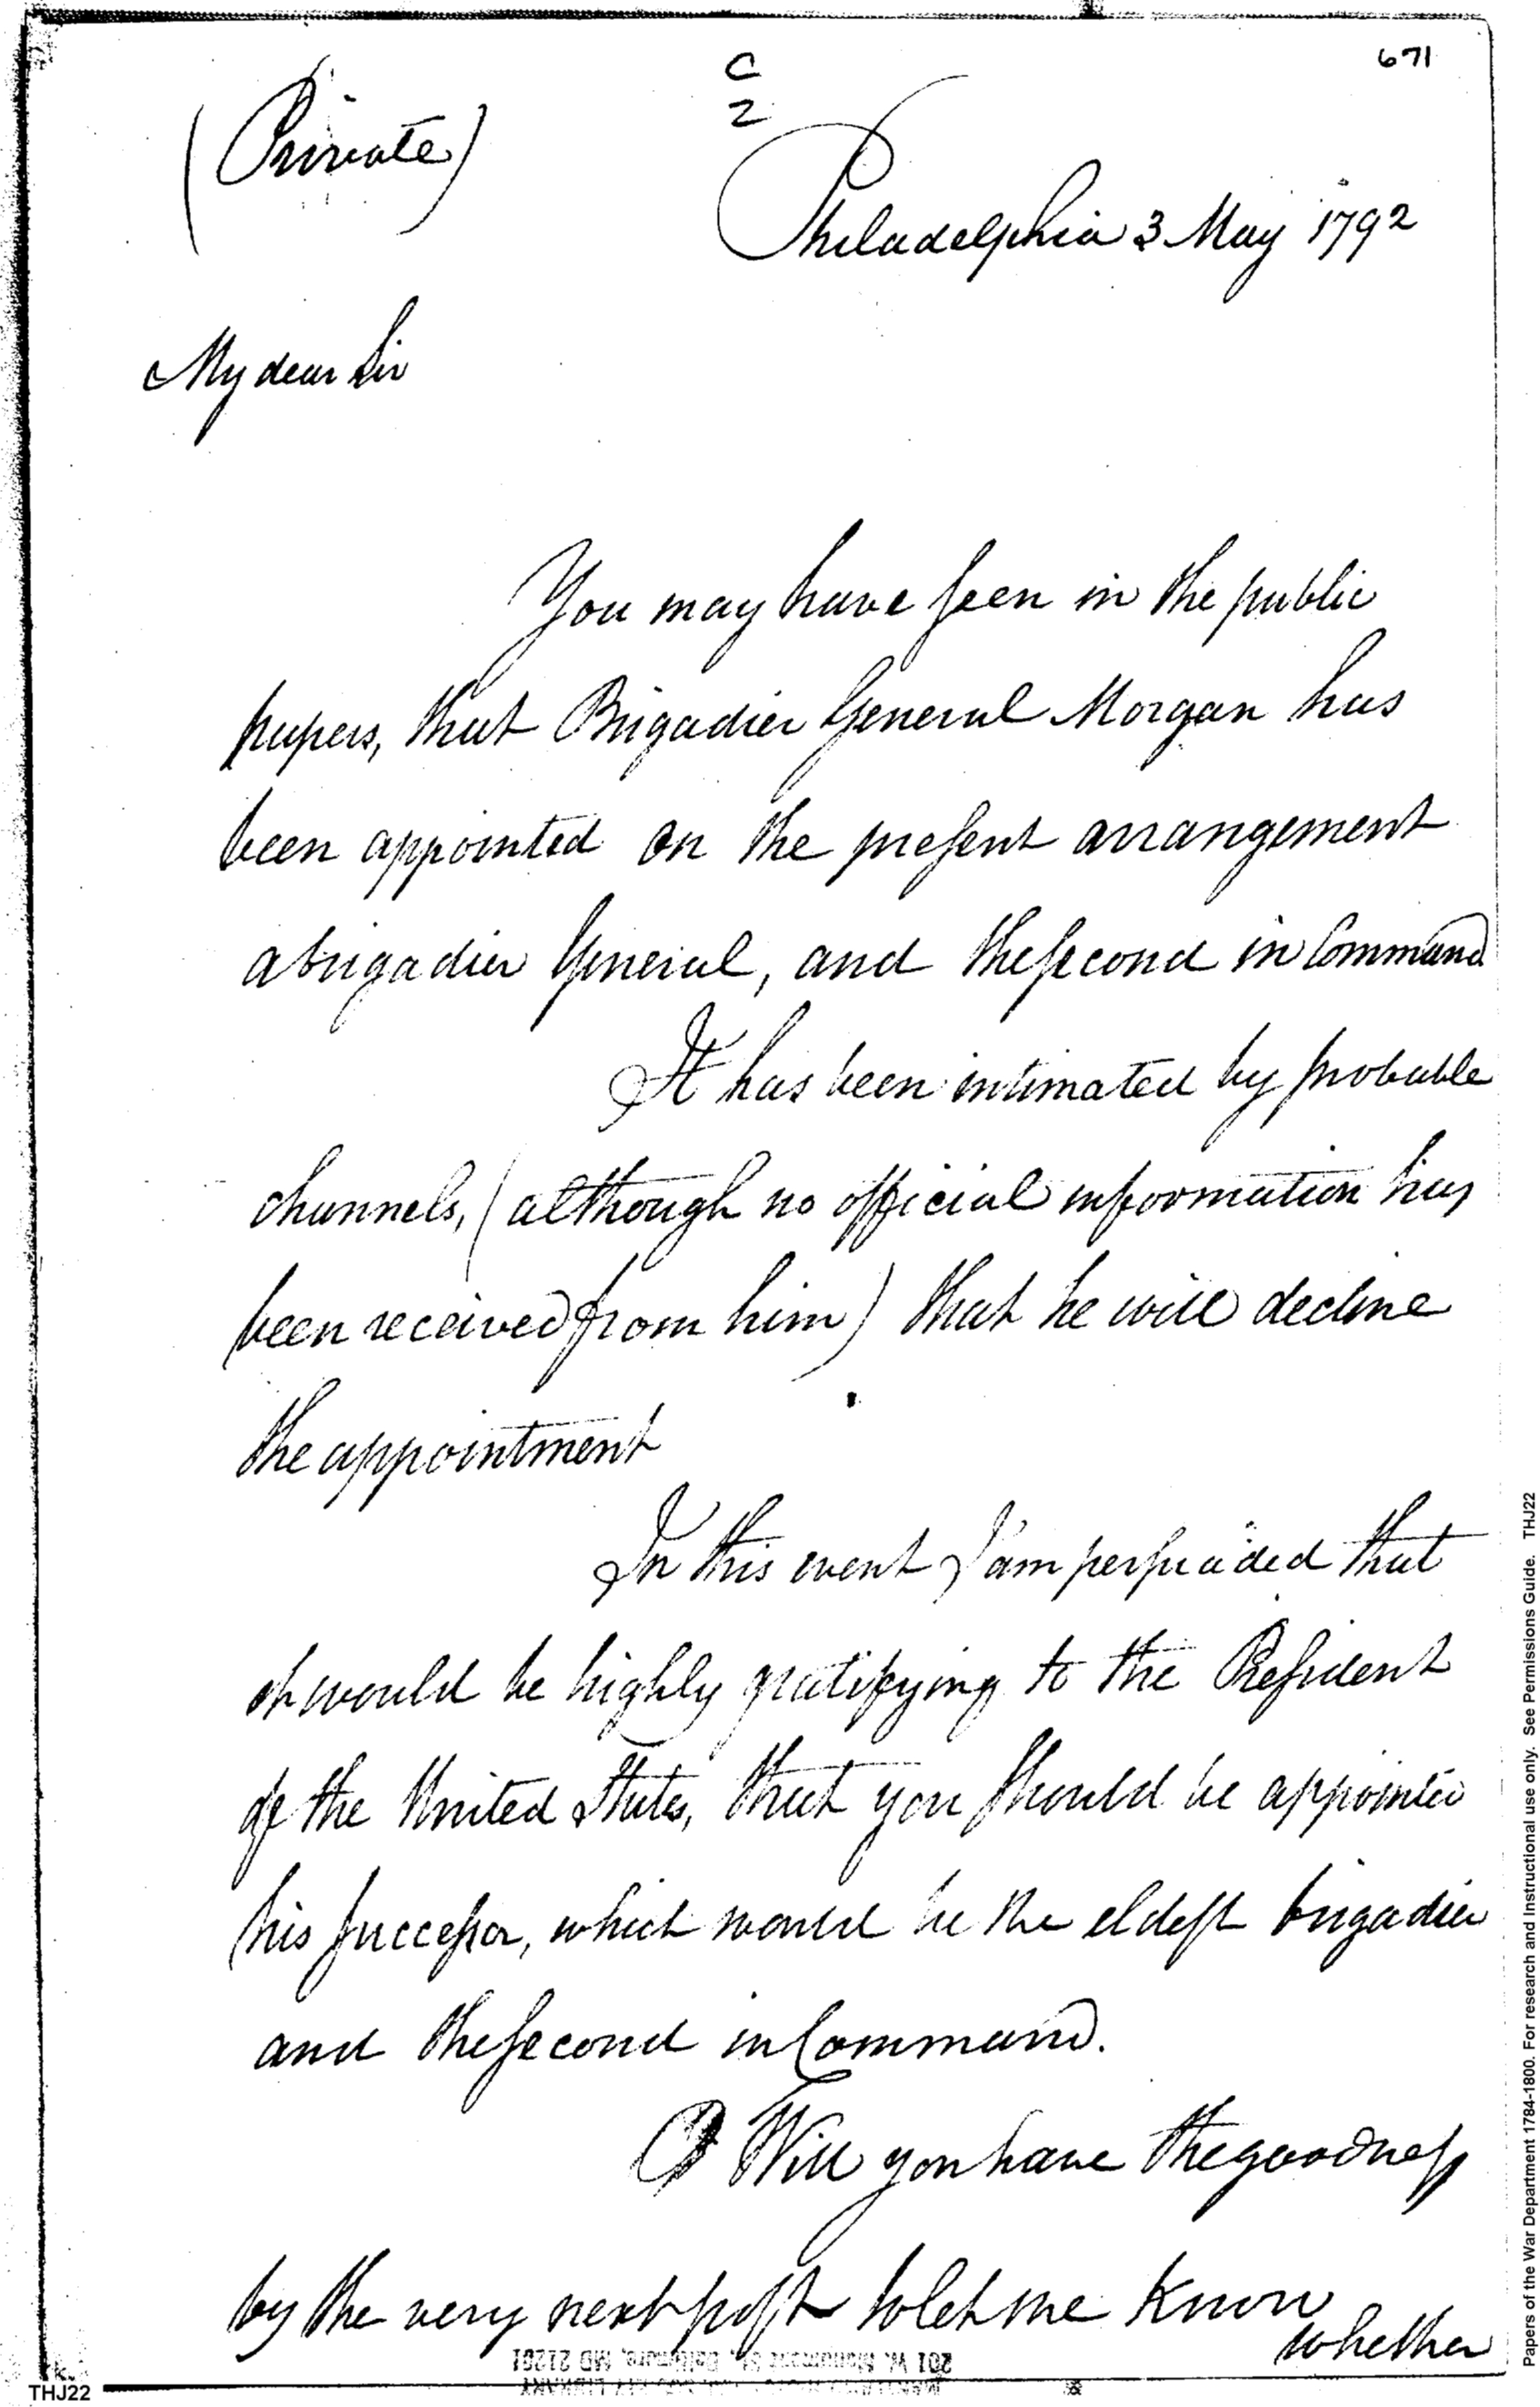 671
C
2
(Private)
Philadelphia 3 May 1792
My dear Sir
You may have seen in the public
papers, that Brigadier General Morgan has
been appointed on the present arrangement
a brigadier General, and the second in Command
It has been intimated by probable
channels, (although no official information has
been received from him) that he will decline
the appointment
In this event I am persuaded that
it would be highly gratifying to the President
of the United States, that you should be appointed
his successor, which would be the eldest brigadier
and the second in Command.
Will you have the goodness
by the very next post to let me know
whether
201 W. Monument St., Baltimore, MD 21201
THJ22
Papers of the War Department 1784-1800. For research and Instructional use only. See Permissions Guide. THJ22